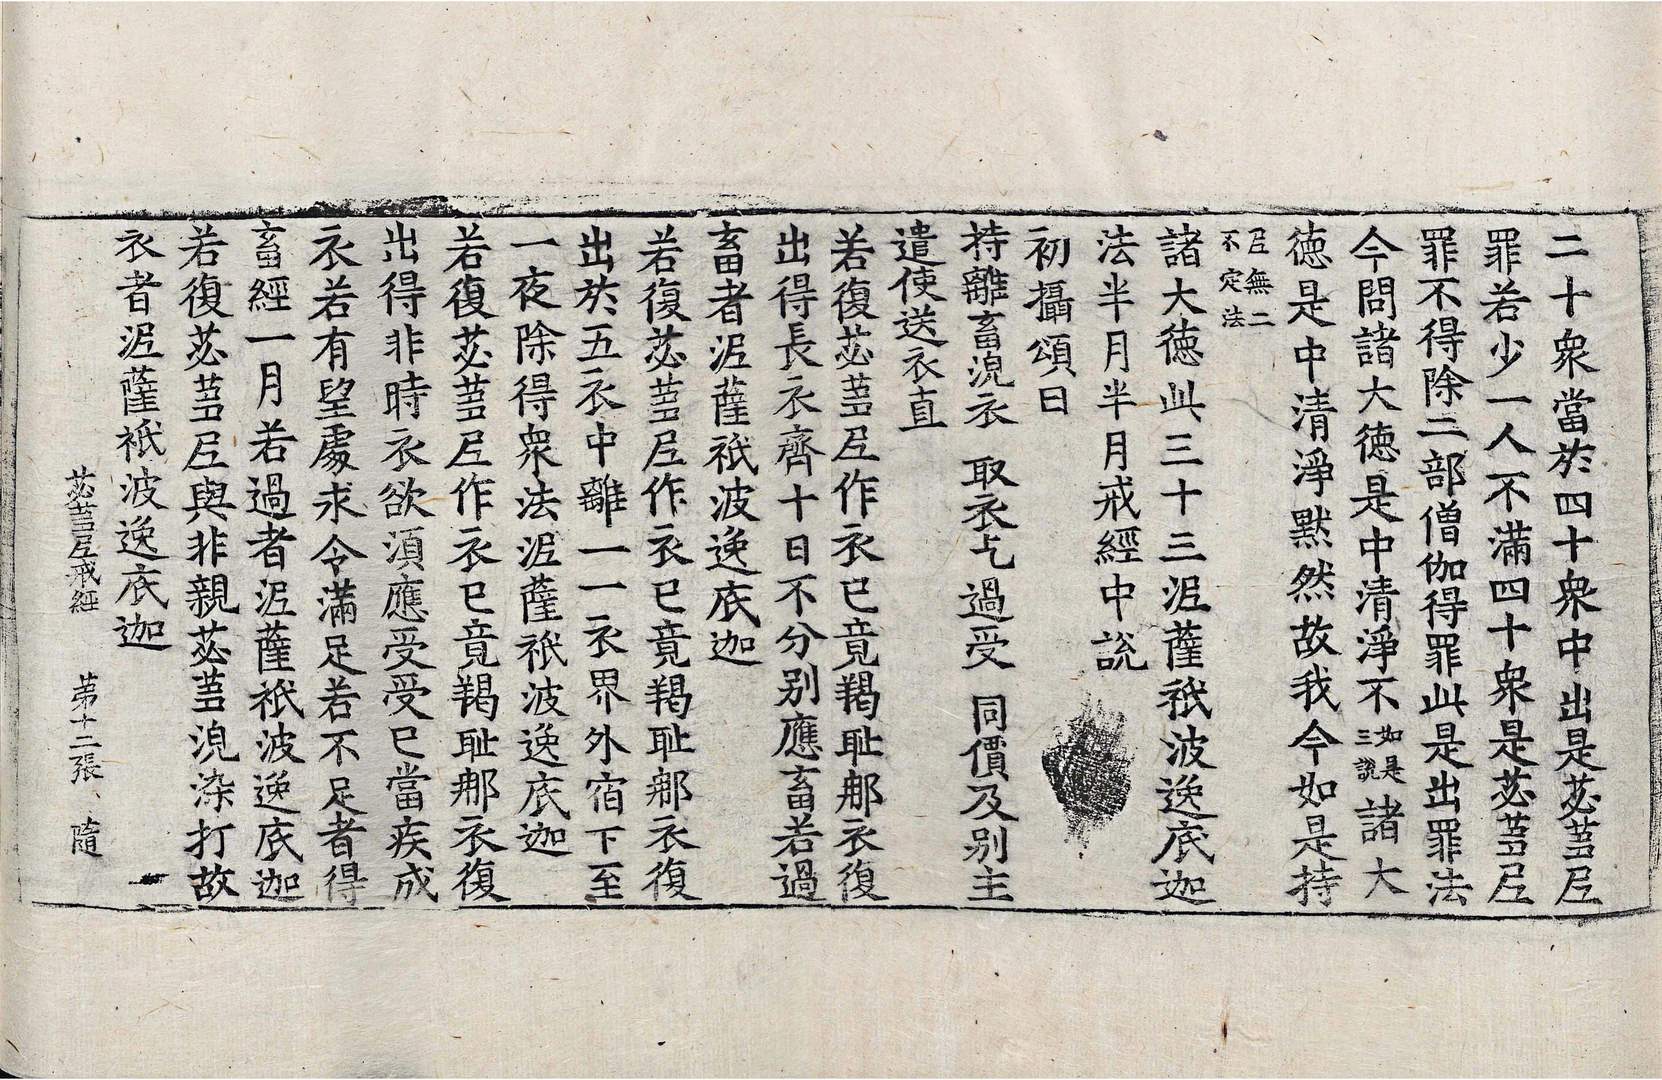 二十衆當於四十衆中出是苾蒭尼
罪若少一人不滿四十衆是苾蒭尼
罪不得除二部僧伽得罪此是出罪法
今問諸大德是中清淨不如是三說諸大
德是中清淨黙然故我今如是持
尼無二
不定法
諸大德此三十三泥薩祇波逸底迦
法半月半月戒經中説
初攝頌曰
持離畜浣衣 取衣乞過受 同價及别主
遣使送衣直
若復苾蒭尼作衣已竟羯耻那衣復
出得長衣齊十日不分别應畜若過
畜者泥薩祇波逸底迦
若復苾蒭尼作衣已竟羯耻那衣復
出於五衣中離一一衣界外宿下至
一夜除得衆法泥薩祇波逸底迦
若復苾蒭尼作衣已竟羯耻那衣復
出得非時衣欲須應受受已當疾成
衣若有望處求令滿足若不足者得
畜經一月若過者泥薩祇波逸底迦
若復苾蒭尼與非親苾蒭浣染打故
衣者泥薩祇波逸底迦
苾蒭尼戒經 第十二張 隨